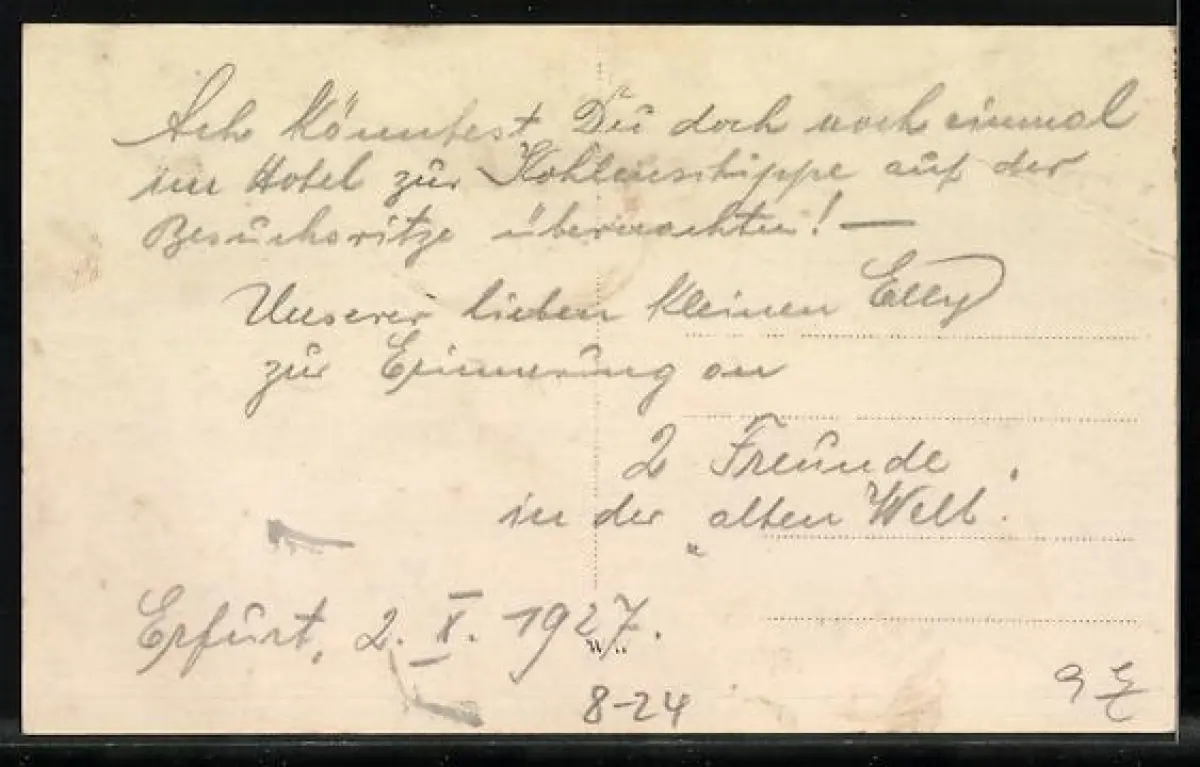 Ach könntest Du doch noch einmal
im Hotel zur Kohlenschippe auf der
Besuchsritze übernachten! —
Unserer lieben kleinen Elly
zur Erinnerung an
2 Freunde
in der „alten Welt".
Erfurt, 2. X. 1927.
8-24